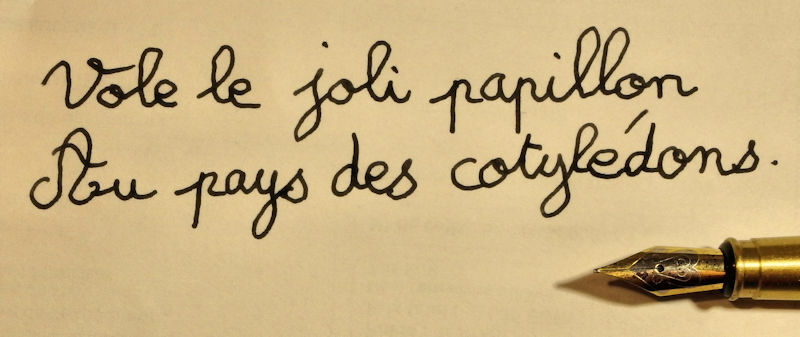 Vole le joli papillon
Au pays des cotylédons.